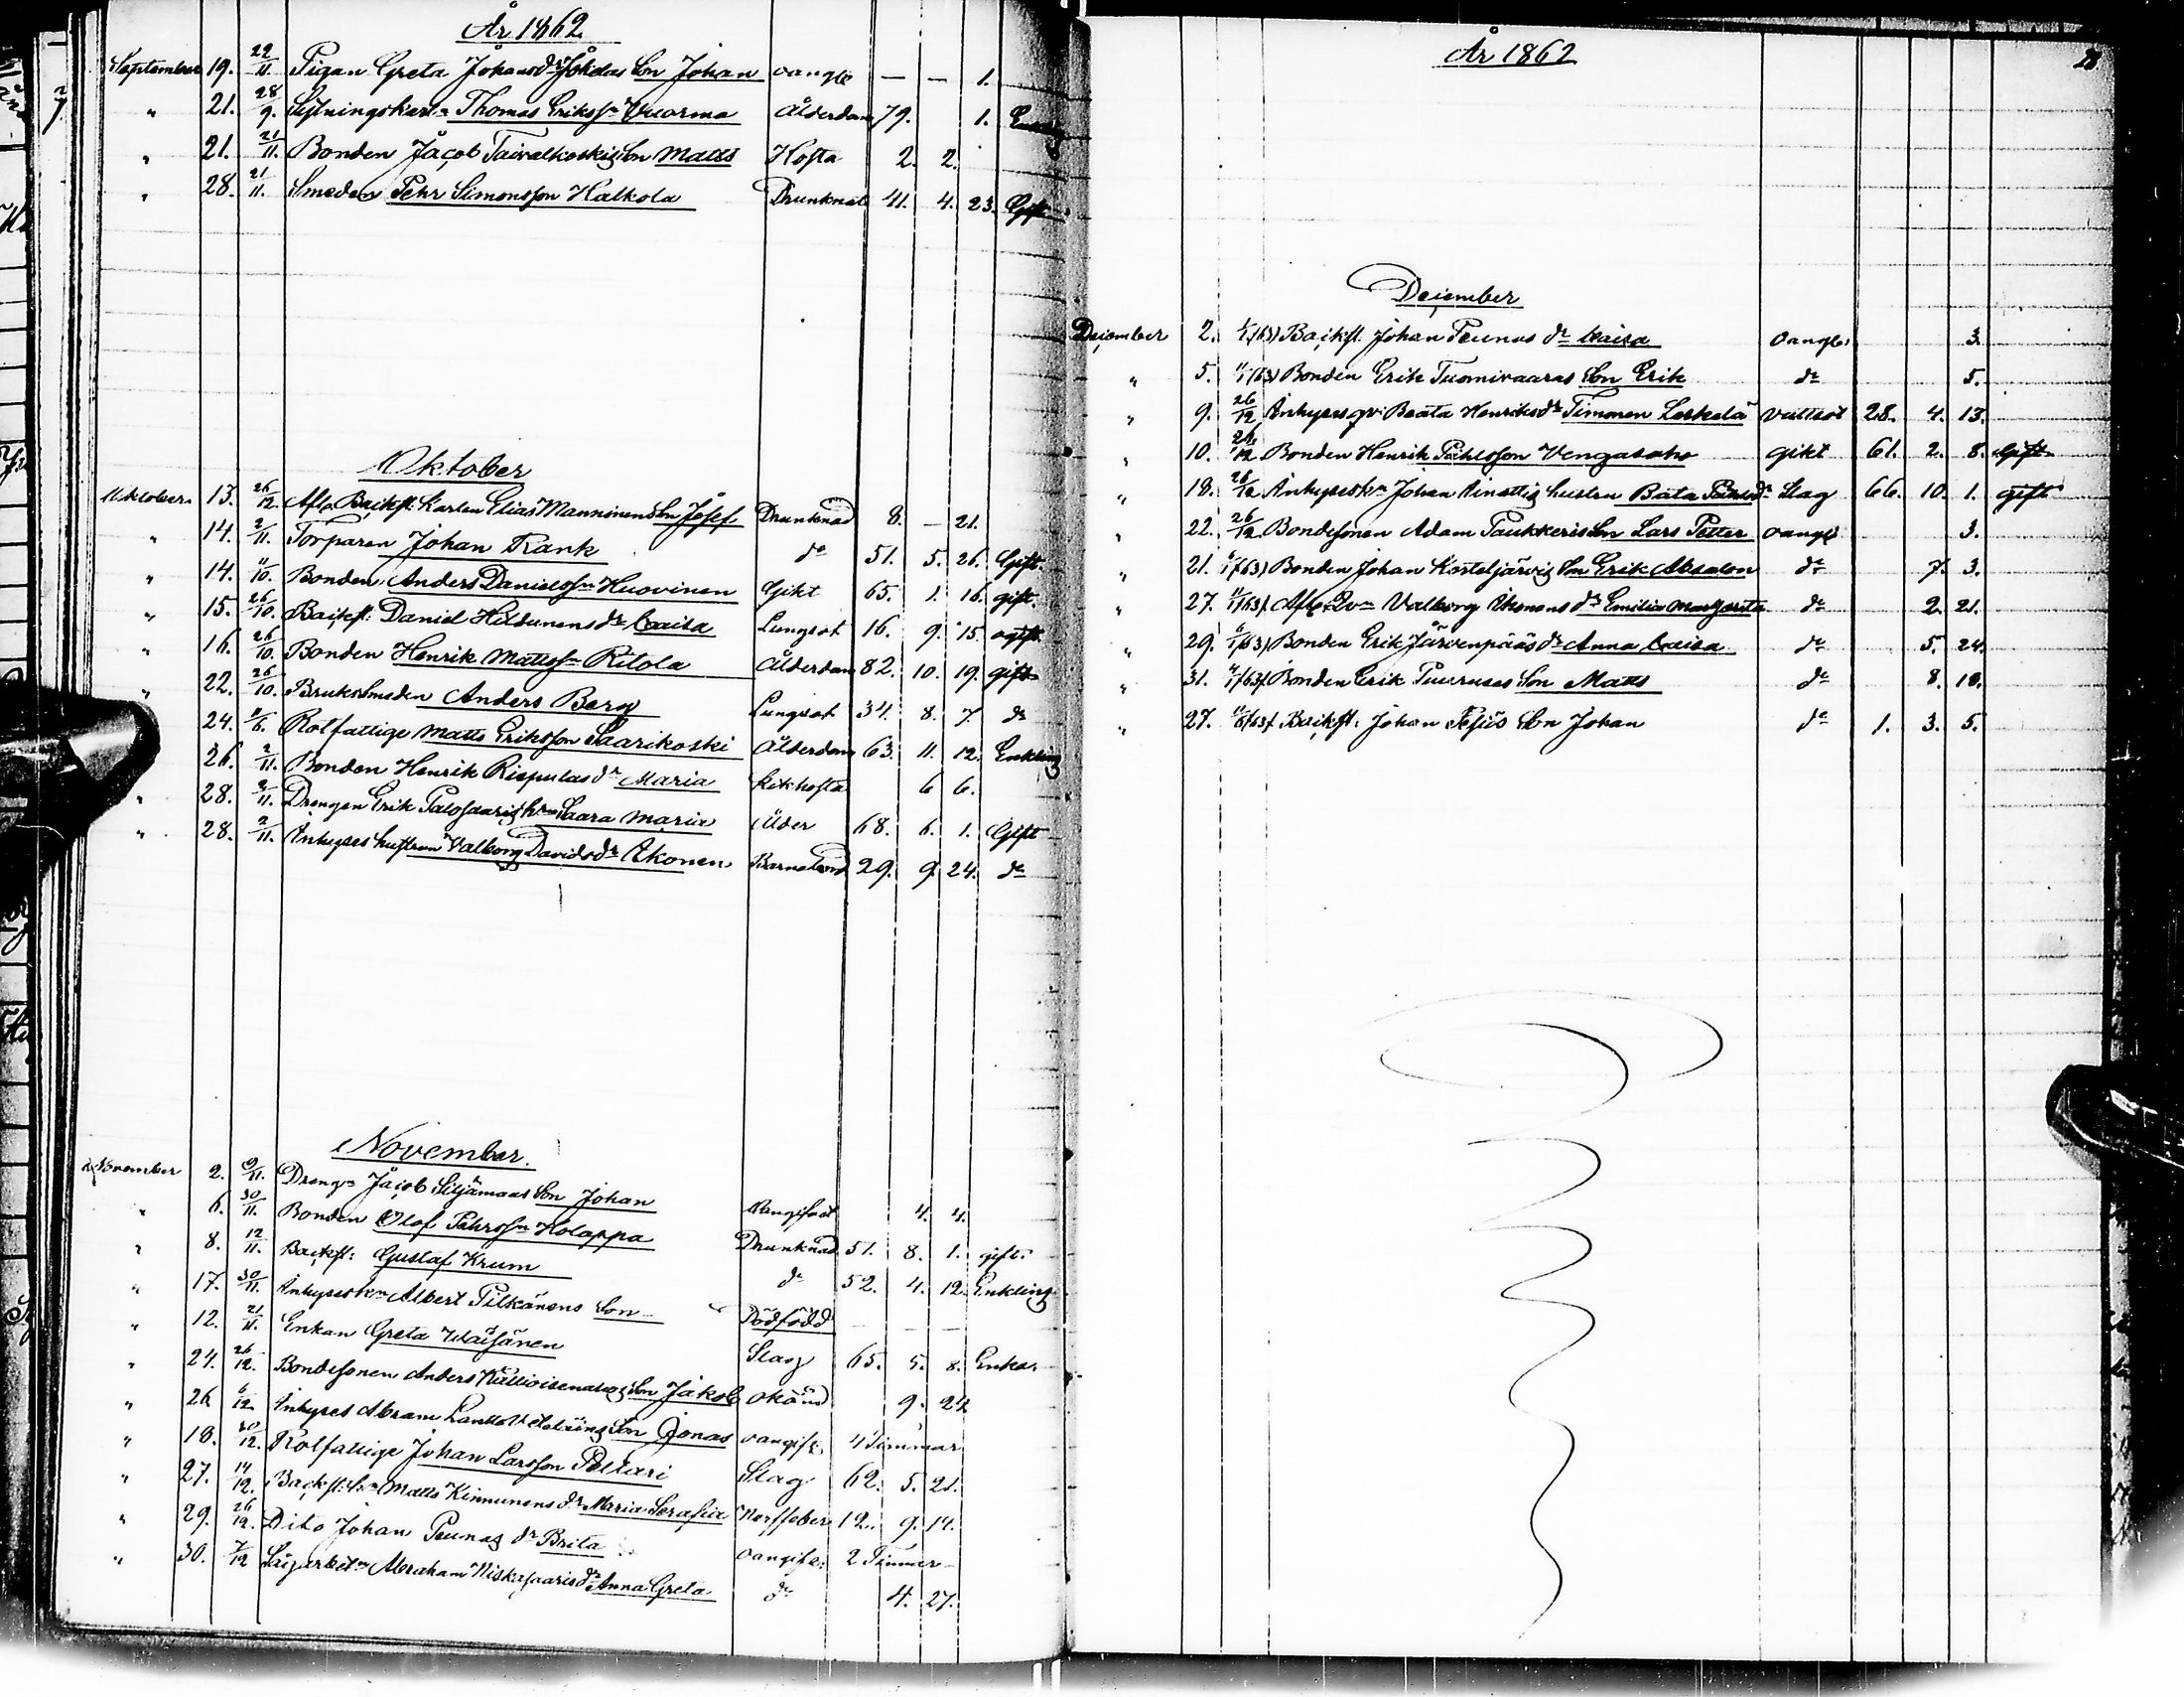 År 1862
September 19. 22/11. Pigan Greta Johansdr Jokelas Son Johan oangle — — 1.
" 21. 28/9. Sytningskarl Thomas Eriksson Vuorma Ålderdom 79. 1.
" 21. 21/11. Bonden Jacob Taivalkoskis Son Matts Hosta 2. 2.
" 28. 21/11. Smeden Pehr Simonsson Halkola Drunknat 41. 4. 23. Gift
Oktober
Oktober 13. 26/12 Afl. Backst. Karlen Elias Manninens Son Josef Drunknad 8. — 21.
" 14. 2/11. Torparen Johan Rank do 51. 5. 26. Gift.
" 14. 11/10. Bonden Anders Danielsson Huovinen Gikt 65. 1. 16. gift.
" 15. 26/10. Backst: Daniel Hildunens dr Caisa Lungsot 16. 9. 15. ogift.
" 16. 26/10. Bonden Henrik Mattsson Ritola Ålderdom 82. 10. 19. gift
" 22. 26/10. Bruksmeden Anders Berg Lungsot 34. 8. 7. do
24. Rotfattige Matts Eriksson Saarikoski Ålderdom 63. 11. 12. Enkling
26. 2/11. Bonden Henrik Rispulas dr Maria Kikhosta 6 6.
" 28. 2/11. Drengen Erik Palosaaris hu Saara Maria Ålder 68. 6. 1. Gift
" 28. 2/11. Inhyses hustrun Valborg Davidsdr Åkonen Barnsbörd 29. 9. 24. do
November.
November 2. 9/11. Dreng Jacob Siljämaas Son Johan Oangifvet 4. 4.
" 6. 30/11. Bonden Olof Påhrsson Holappa Drunknad 51. 8. 1. gift.
" 8. 12/11. Backst: Gustaf Krum do 52. 4. 12. Enkling
" 17. 30/11. Inhyses Albert Pitkänens Son Dödfödd — —
" 12. 21/11. Enkan Greta Wäisänen Slag 65. 5. 8. Enka.
" 24. 26/12. Bondesonen Anders Son Jakob okänd 9. 24
" 26 6/12. Inhyses Abram Son Jonas oangif: 4 Timmar
" 18. 30/12. Rotfattige Johan Larsson Peltari Slag 62. 5. 21.
" 27. 14/12. Backst: Matts Kinnunens dr Maria Serafia Nerffeber 12. 9. 14.
" 29. 26/12. Dito Johan Peunas dr Brita oangife: 2 Timmar
" 30. 7/12 Sågarbet. Abraham Niskasaaris dr Anna Greta do 4. 27.
År 1862
28.
December
December 2. Backst. Johan Peunas dr Caisa oangle: 3.
" 5. Bonden Erik Tuomivaaras Son Erik do 5.
" 9. 26/12 Inhyses qv: Beata Henriksdr Timonen Leskelä vattsot 28. 4. 13.
" 10. 26/12 Bonden Henrik Påhlsson Vengasaho gikt 61. 2. 8. Gift
" 18. 26/12 Inhyses Johan Ainattis hustru Beata Slag 66. 10. 1. gift
" 22. 26/12 Bondesonen Adam Paukkeris Son Lars Petter oangl 3.
" 21. Bonden Johan Kosteljärvis Son Erik Absalon do 7. 3.
" 27. Afl. Qv Valborg Åkonens dr Emilia Margareta do 2. 21.
" 29. Bonden Erik Järvenpääs dr Anna Caisa do 5. 24.
" 31. Bonden Erik Puurusas Son Matts do 8. 10.
" 27. Backst: Johan Son Johan do 1. 3. 5.